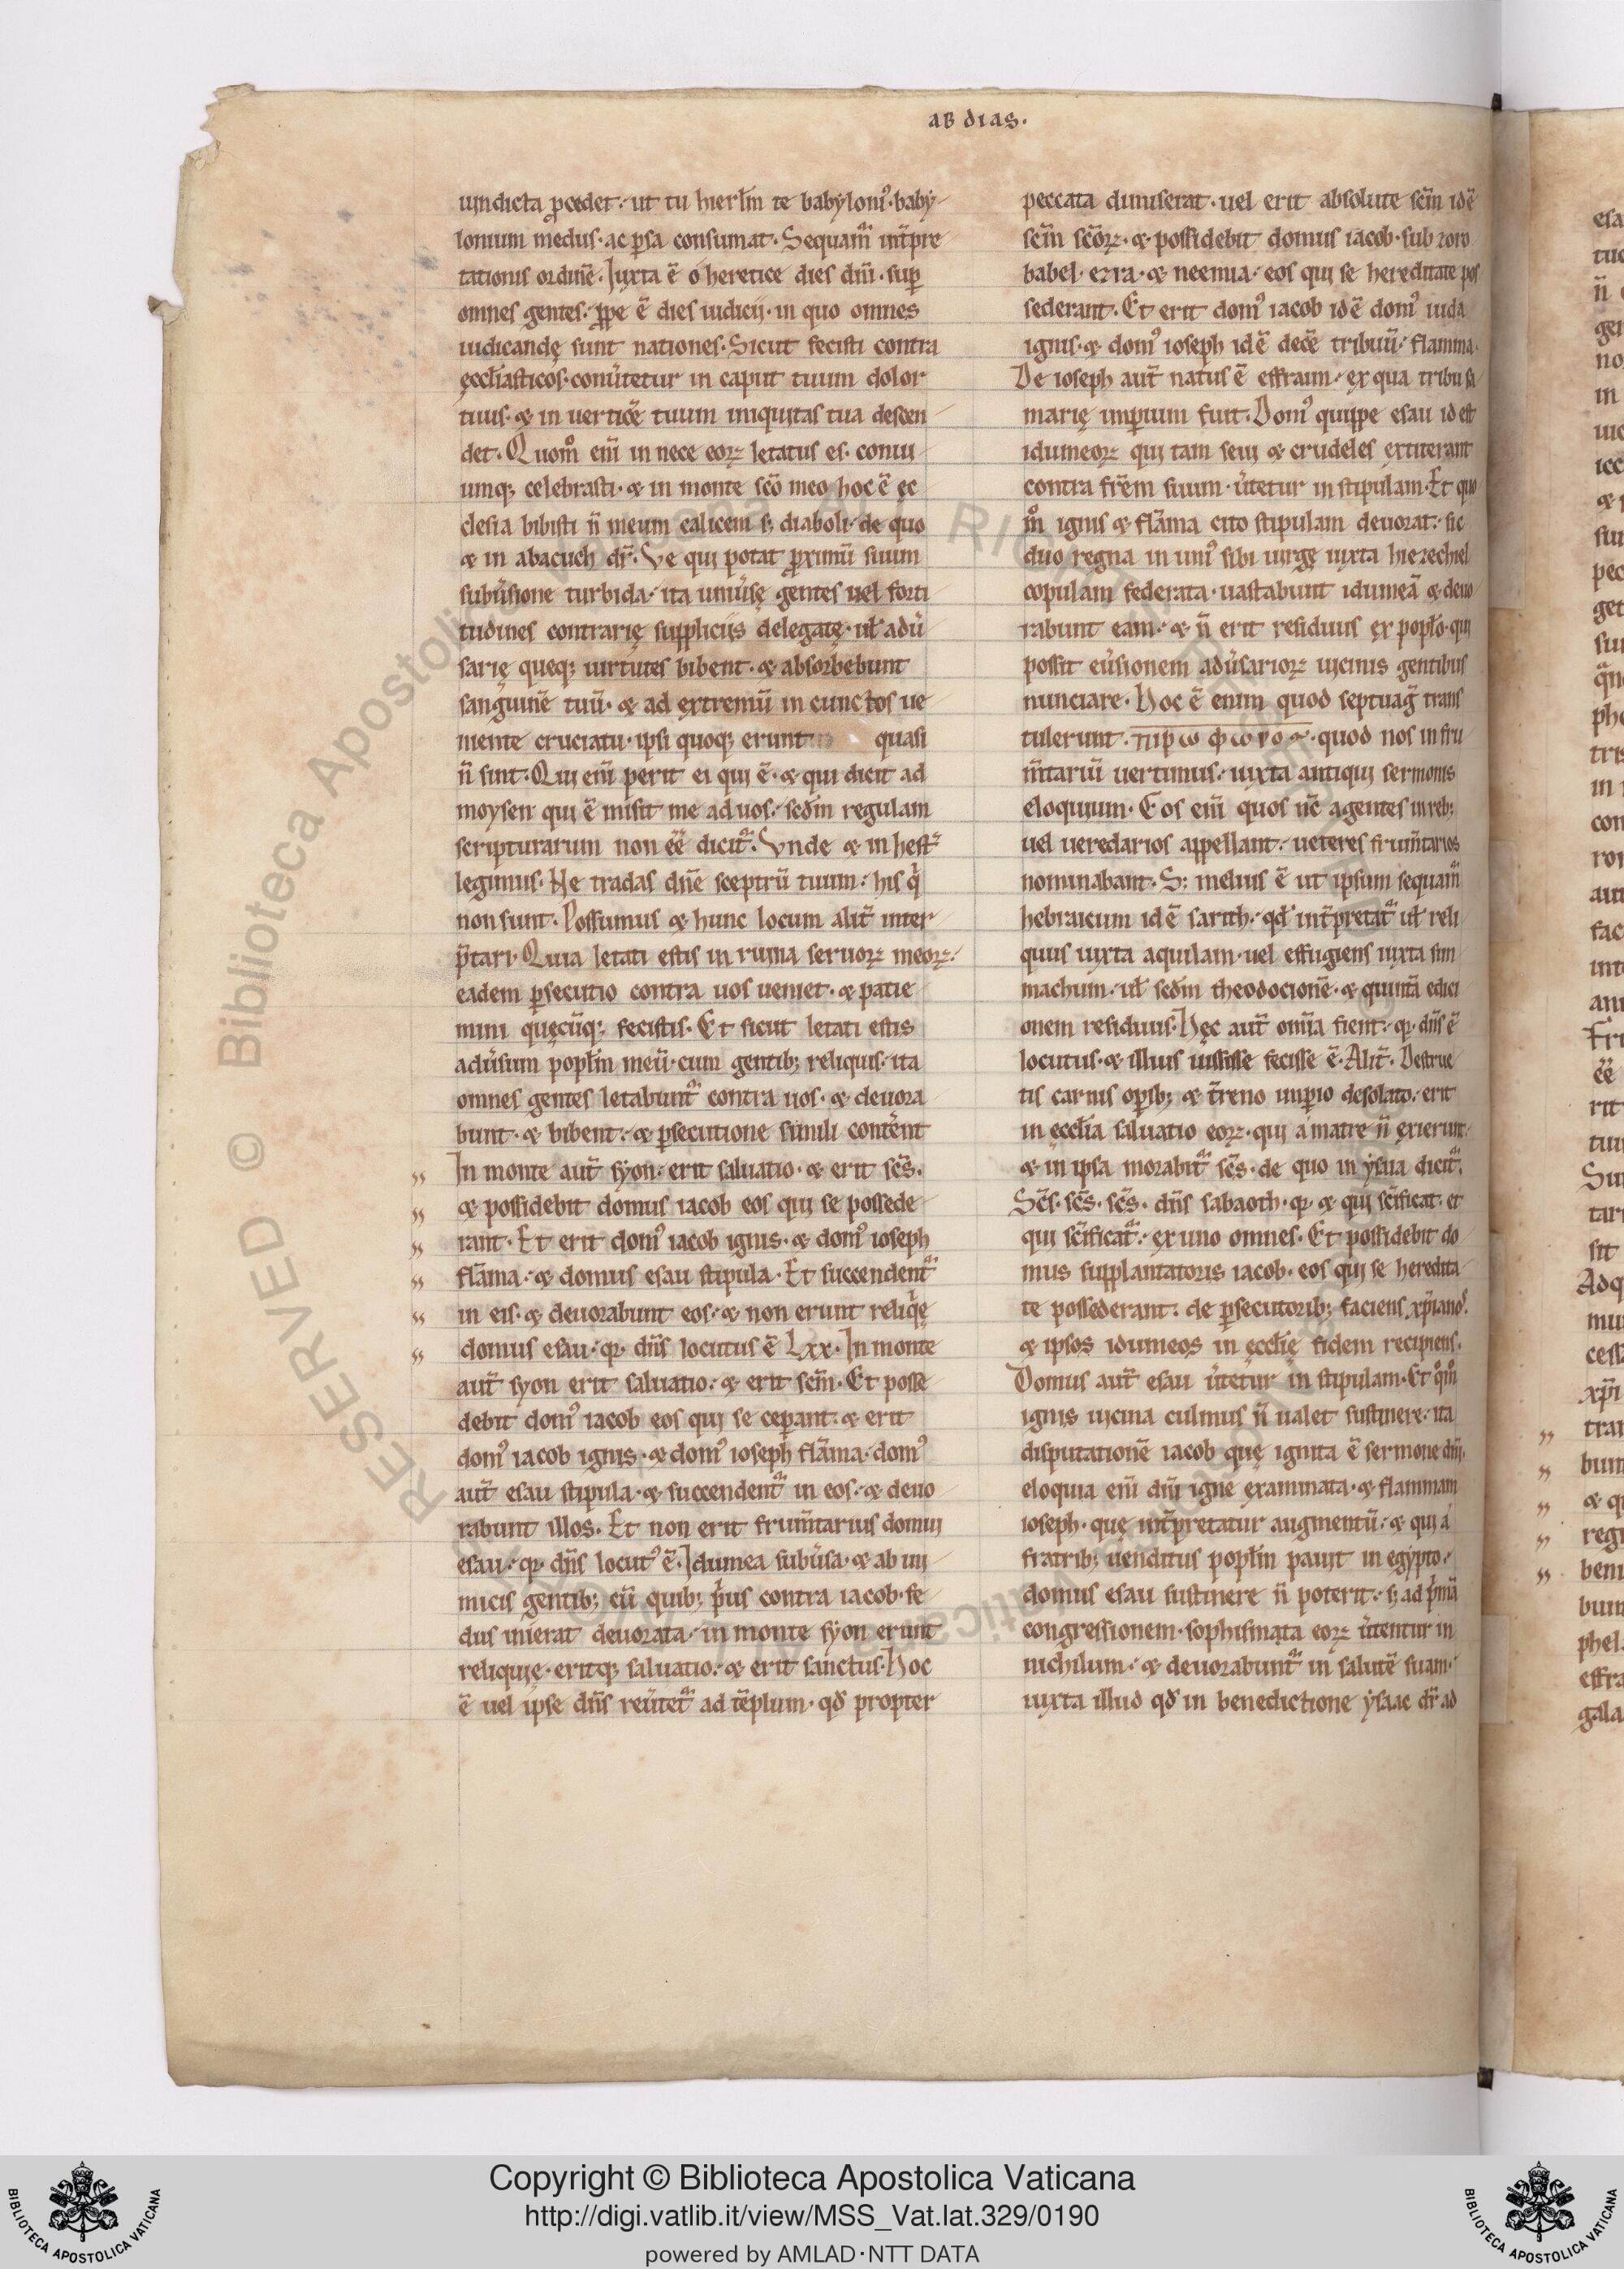 AB dias.
uindicta p̄cedet. ut tu hierlm̄ te babyloni᷒. baby
lonium medus. ac ꝑsa consumat. Sequam᷑ int̄pre
tationis ordinē. Juxta ē o heretice dies dn̄i. suꝑ
omnes gentes. ꝓpe ē dies iudicij. in quo omnes
iudicandę sunt nationes. Sicut fecisti contra
ęccl̄iasticos. conu̾tetur in caput tuum dolor
tuus. & in uerticē tuum iniquitas tua descen
det. Quom̊ eni̅ in nece eoꝝ letatus es. conui
uiuq; celebrasti. & in monte sc̄o meo hoc ē ec
clesia bibisti n̄ meum calicem s; diaboli. de quo
& in abacuch dr̄. Ve qui potat ꝓximū suum
subu̾sione turbida. ita uniu̾sę gentes uel forti
tudines contrarię supplicijs delegatę. ul̄ adu̾
sarię queq; uirtutes bibent. & absorbebunt
sanguinē tuū. & ad extremū in cunctos ue
niente cruciatu. ipsi quoq; erunt quasi
n̄ sint. Qui eni̅ perit ei qui ē. & qui dicit ad
moysen qui ē misit me ad uos. sedm̄ regulam
scripturarum non ēē dicit᷑. Vnde & in hest̄
legimus. Ne tradas dn̄e sceptrū tuum. his q̇
non sunt. Possumus & hunc locum alit̄ inter
p̄tari. Quia letati estis in ruina seruoꝝ meoꝝ.
eadem ꝑsecutio contra uos ueniet. & patie
mini quęcūq; fecistis. Et sicut letati estis
adu̾sum popl̄m meū. cum gentib; reliquis. ita
omnes gentes letabunt᷑ contra uos. & deuora
bunt. & bibent. & ꝑsecutione simili conte̾nt
„ In monte aut̄ syon. erit saluatio. & erit sc̄s.
„ & possidebit domus iacob eos qui se possede
„ rant. Et erit dom᷒ iacob ignis. & dom᷒ ioseph
„ flāma. & domus esau stipula. Et succendent᷑
„ in eis. & deuorabunt eos. & non erunt reliq̇ę
„ domus esau. qꝛ dn̄s locutus ē Lxx. In monte
aut̄ syon erit saluatio. & erit sc̄m. Et posse
debit dom᷒ iacob eos qui se ceꝑant. & erit
dom᷒ iacob ignis. & dom᷒ ioseph flāma. dom᷒
aut̄ esau stipula. & succendent᷑ in eos. & deuo
rabunt illos. Et non erit frum̄tarius domui
esau. qꝛ dn̄s locut᷒ ē. Idumea subu̾sa. & ab ini
micis gentib; cū quib; p̓us contra iacob. fe
dus inierat deuorata. in monte syon erunt
reliquię. eritq; saluatio. & erit sanctus. Hoc
ē uel ipse dn̄s reu̾tet᷑ ad tēplum. qd̄ propter
peccata dimiserat. uel erit absolute sc̄m idē
sc̄m sc̄oꝝ. & possidebit domus iacob. sub zoro
babel. ezra. & neemia. eos qui se hereditate pos
sederant. Et erit dom᷒ iacob idē dom᷒ iuda
ignis. & dom᷒ ioseph idē decē tribuū. flamma.
De ioseph aut̄ natus ē effraim. ex qua tribu sa
marię imꝑium fuit. Dom᷒ quippe esau id est
idumeoꝝ qui tam seui & crudeles extiterant
contra fr̄em suum. u̾tetur in stipulam. Et quo
m̊ ignis & flāma cito stipulam deuorat. sic
duo regna in uni᷒ sibi uirgę iuxta hiezechiel
copulam federata. uastabunt idumeā & deuo
rabunt eam. & n̄ erit residuus ex popl̄o. qui
possit eu̾sionem adu̾sarioꝝ uicinis gentibus
nunciare. Hoc ē enim quod septuaḡ trans
tulerunt. πιρω φωροσ. quod nos in fru
m̄tariū uertimus. iuxta antiqui sermonis
eloquium. Eos eni̅ quos nc̄ agentes in reb;
uel ueredarios appellant. ueteres frum̄tarios
nominabant. S; melius ē ut ipsum sequam᷑
hebraicum idē sarith. qd̄ int̄pretat᷑ ul̄ reli
quus iuxta aquilam. uel effugiens iuxta sim
machum. ul̄ sedm̄ theodocionē. & quintā edici
onem residuus. Hęc aut̄ omīa fient. qꝛ dn̄s ē
locutus. & illius iussisse fecisse ē. Alit̄. Destruc
tis carnis oꝑib; & t̄reno imꝑio desolato. erit
in ęccl̄ia saluatio eoꝝ. qui a matre n̄ exierunt.
& in ipsa morabit᷑ sc̄s. de quo in ysaia dicit᷑.
Sc̄s. sc̄s. sc̄s. dn̄s sabaoth. qꝛ & qui sc̄ificat. et
qui sc̄ificat᷑. ex uno omnes. Et possidebit do
mus supplantatoris iacob. eos qui se heredita
te possederant. de ꝑsecutorib; faciens xp̄ianos.
& ipsos idumeos in ęccl̄ię fidem recipiens.
Domus aut̄ esau u̾tetur in stipulam. Et qm̊
ignis uicina culmus n̄ ualet sustinere. ita
disputationē iacob quę ignita ē sermone dn̄i.
eloquia eni̅ dn̄i igne examinata. & flammam
ioseph. quę int̄pretatur augmentū. & qui a
fratrib; uenditus popl̄m pauit in egypto.
domus esau sustinere n̄ poterit. s; ad p̓mā
congressionem. sophismata eoꝝ u̾tentur in
nichilum. & deuorabunt᷑ in salutē suam.
iuxta illud qd̄ in benedictione ysaac dr̄ ad
Copyright © Biblioteca Apostolica Vaticana
http://digi.vatlib.it/view/MSS_Vat.lat.329/0190
powered by AMLAD·NTT DATA
BIBLIOTECA APOSTOLICA VATICANA
BIBLIOTECA APOSTOLICA VATICANA